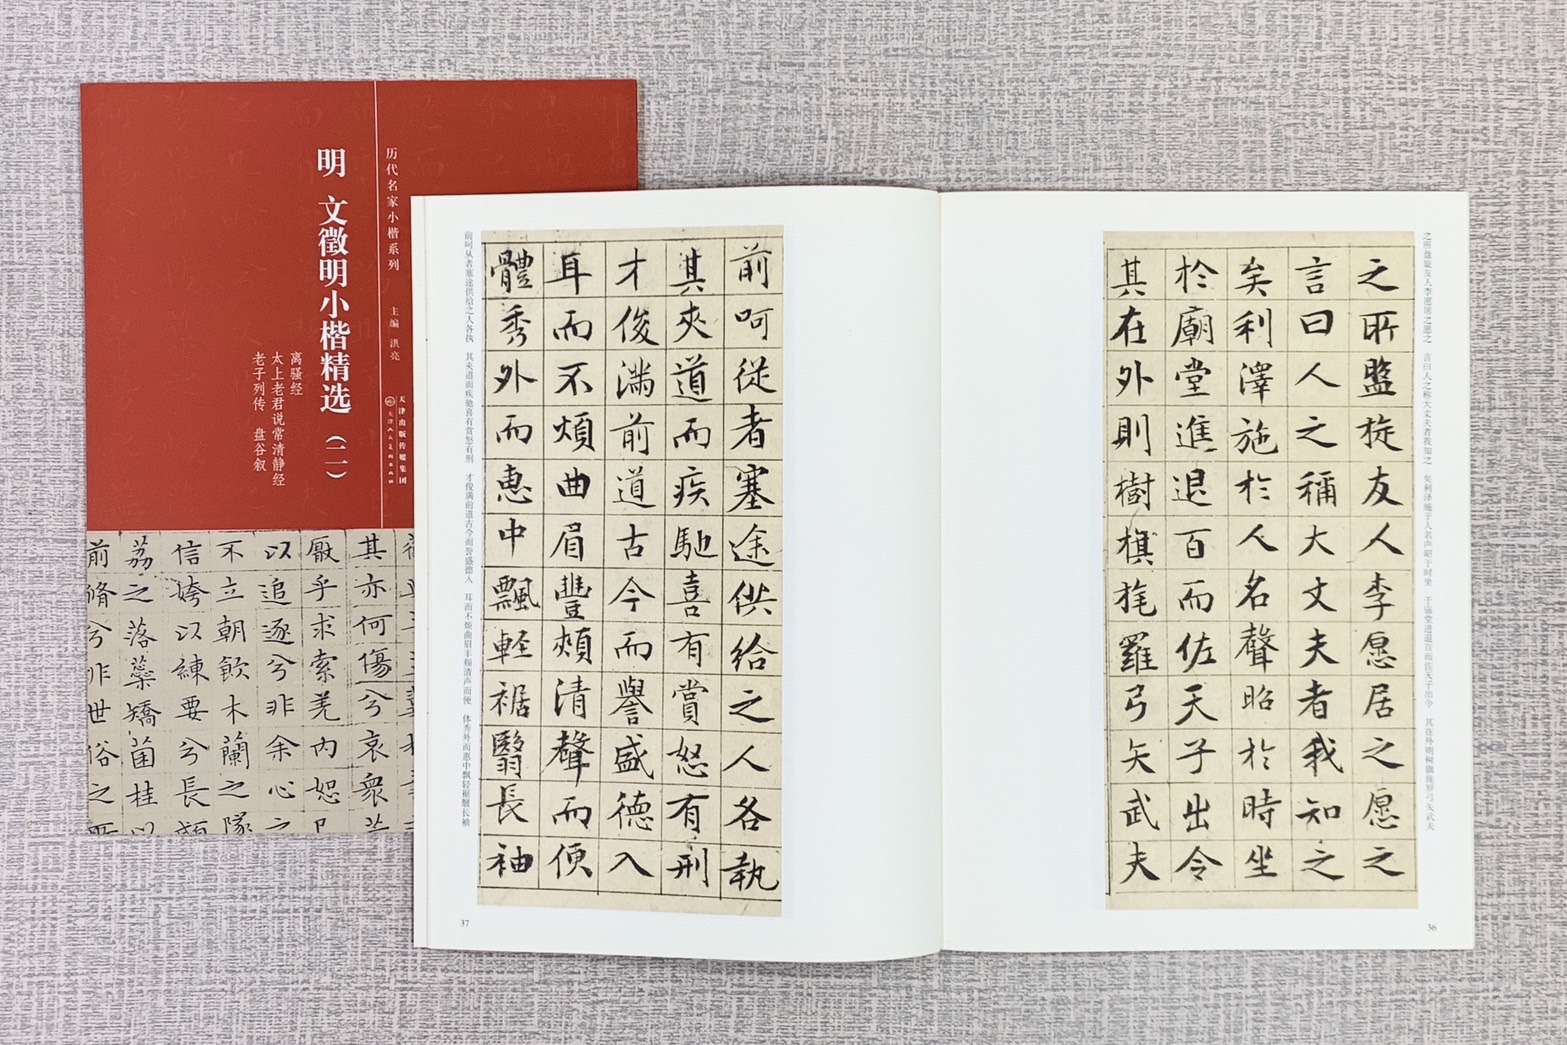 历代名家小楷系列
主编 洪亮
天津出版传媒集团
天津人民美术出版社
明 文徵明小楷精选(二)
离骚经
太上老君说常清静经
老子列传 盘谷叙
蕊
其亦何傷兮哀衆芳
厭乎求索羌内恕
以追逐兮非余心之
不立朝飲木蘭之墜
信姱以練要兮長顑
荔之落蘂矯菌桂以
前脩兮非世俗之所
之所盤旋友人李愿居之愿之
言曰人之稱大丈夫者我知之
矣利澤施於人名聲昭於時坐
於廟堂進退百而佐天子出令
其在外則樹旗旄羅弓矢武夫
之所盘旋友人李愿居之愿之 言曰人之称大丈夫者我知之 矣利泽施于人名声昭于时坐 于庙堂进退百而佐天子出令 其在外则树旗旄罗弓矢武夫
36
前呵從者塞途供給之人各執
其夾道而疾馳喜有賞怒有刑
才俊滿前道古今而譽盛德入
耳而不煩曲眉豐頰清聲而便
體秀外而惠中飄輕裾翳長袖
前呵从者塞途供给之人各执 其夹道而疾驰喜有赏怒有刑 才俊满前道古今而誉盛德入 耳而不烦曲眉丰颊清声而便 体秀外而惠中飘轻裾翳长袖
37